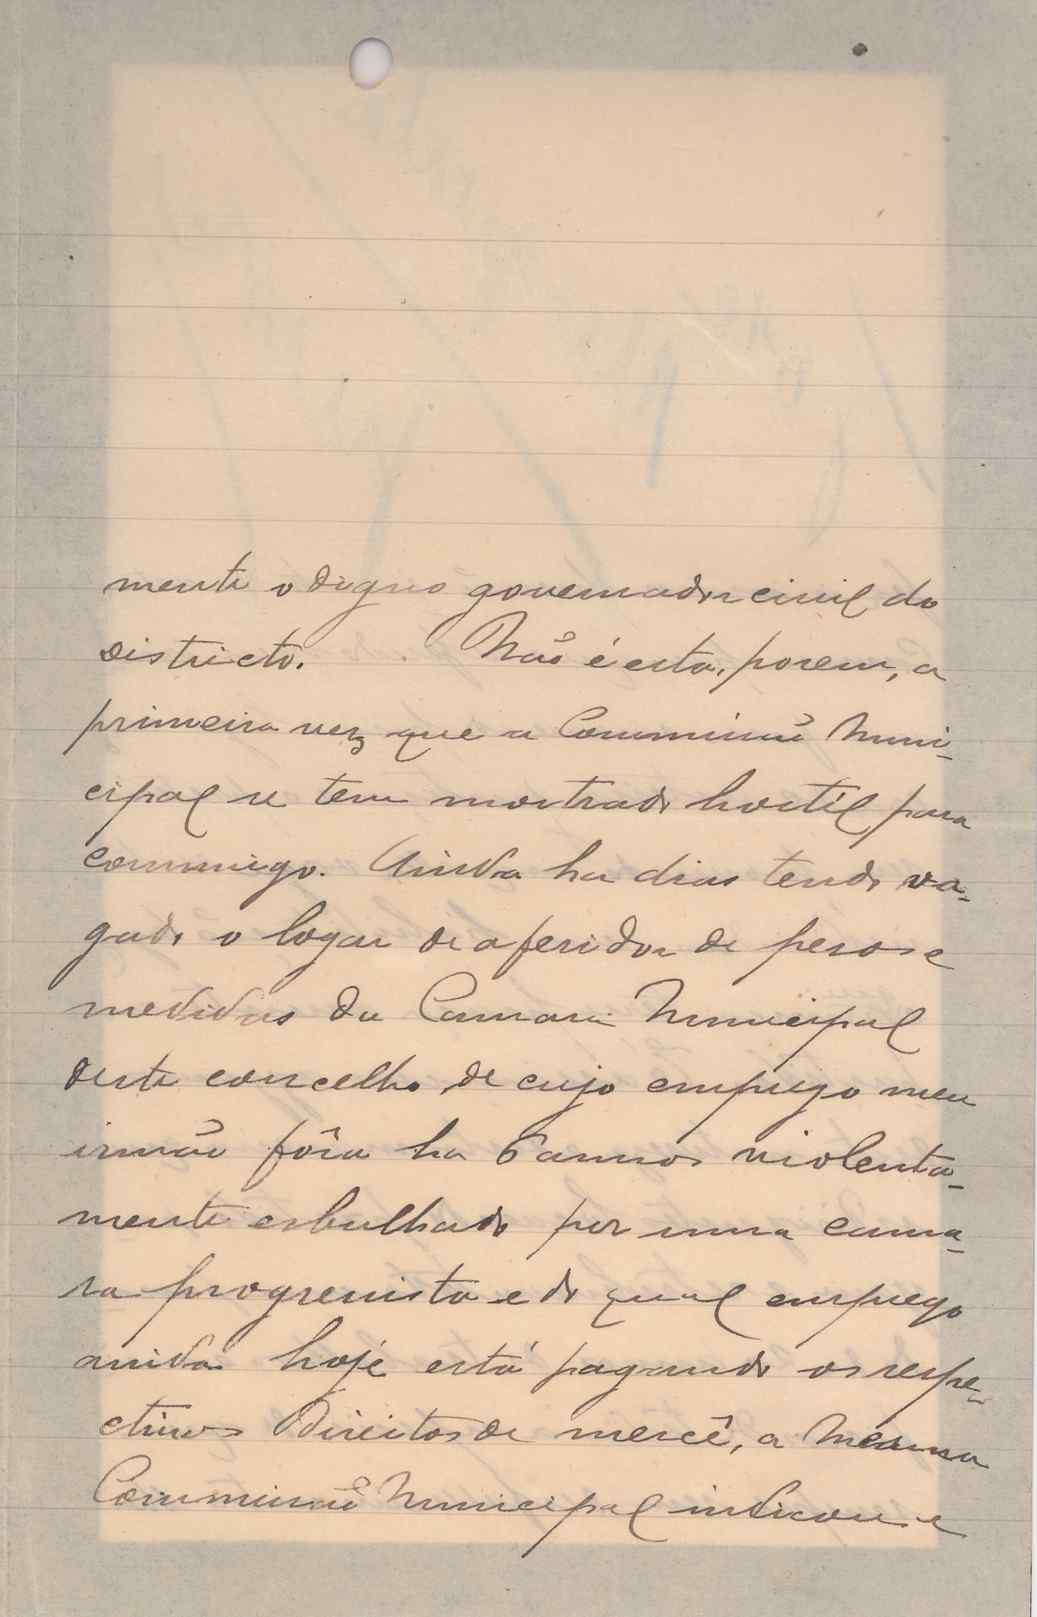 mente o digno governador civil do
districto. Não é esta, porem, a
primeira vez que a Commissão Muni-
cipal se tem mostrado hostil para
commigo. Ainda ha dias tendo va-
gado o logar de aferidor de pesos e
medidas da Camara Municipal
deste concelho de cujo emprego meu
irmão fôra ha 6 annos violenta-
mente esbulhado por uma cama-
ra progressista e do qual emprego
ainda hoje está pagando os respe-
ctivos Direitos de mercê, a mesma
Commissão Municipal indicou e